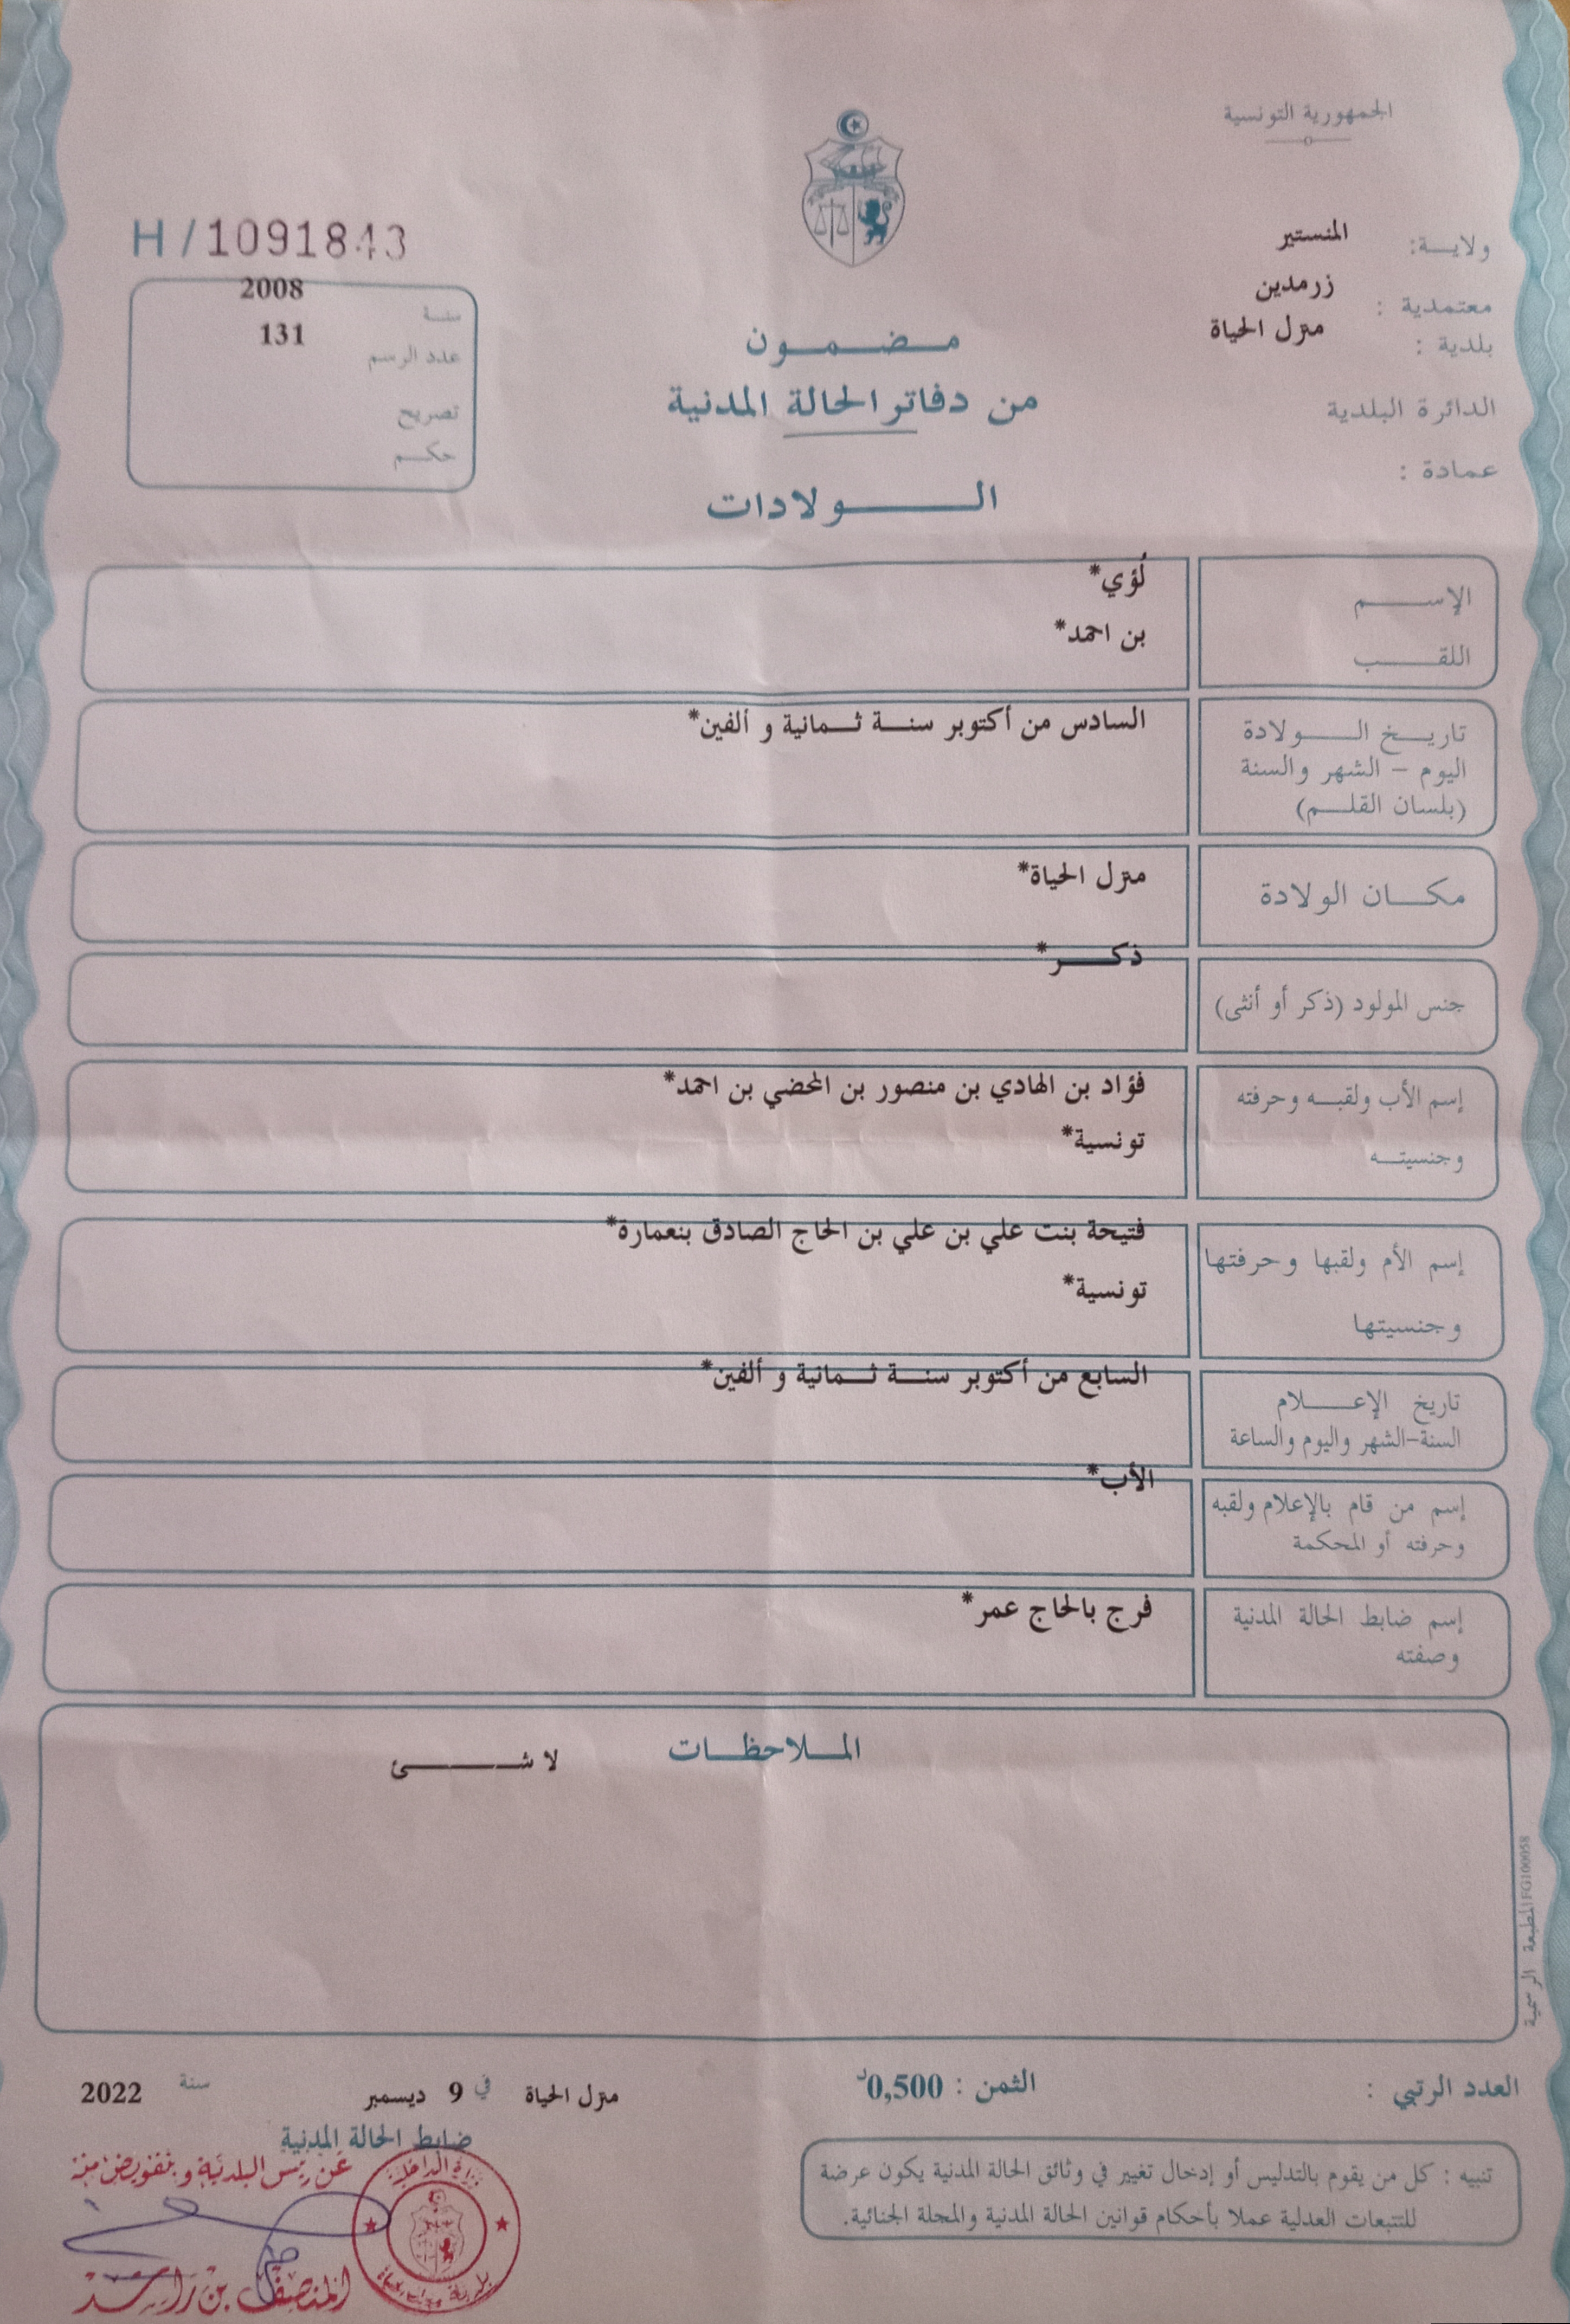 الجمهورية التونسية
ولايـــة: المنستير
معتمدية : زرمدين
بلدية : منزل الحياة
الدائرة البلدية
عمادة :
H / 1091843
سنــة 2008
عدد الرسم 131
تصريح
حكـــم
مـــضـــمـــون
من دفاتر الحالة المدنية
الـــــولادات
الإســـــم لُؤي*
اللقـــــب بن احمد*
تاريـــخ الـــــولادة السادس من أكتوبر سنـــة ثـــمانية و ألفين*
اليوم – الشهر والسنة
(بلسان القلـــم)
مكـــان الولادة منزل الحياة*
جنس المولود (ذكر أو أنثى) ذكـــــر*
إسم الأب ولقبـــه وحرفته فؤاد بن الهادي بن منصور بن المحضي بن احمد*
وجنسيتـــه تونسية*
إسم الأم ولقبها وحرفتها فتيحة بنت علي بن علي بن الحاج الصادق بنعمارة*
وجنسيتها تونسية*
تاريخ الإعـــــلام السابع من أكتوبر سنـــة ثـــمانية و ألفين*
السنة-الشهر واليوم والساعة
إسم من قام بالإعلام ولقبه الأب*
وحرفته أو المحكمة
إسم ضابط الحالة المدنية فرج بالحاج عمر*
وصفته
المـــلاحظـــات لا شـــــئ
المطبعة الرسمية FG100058
العدد الرتبي :
الثمن : 0,500د
منزل الحياة في 9 ديسمبر سنة 2022
ضابط الحالة المدنية
عن رئيس البلدية وبتفويض منه
وزارة الداخلية
المنصف بن راشد
تنبيه : كل من يقوم بالتدليس أو إدخال تغيير في وثائق الحالة المدنية يكون عرضة
للتتبعات العدلية عملا بأحكام قوانين الحالة المدنية والمجلة الجنائية.